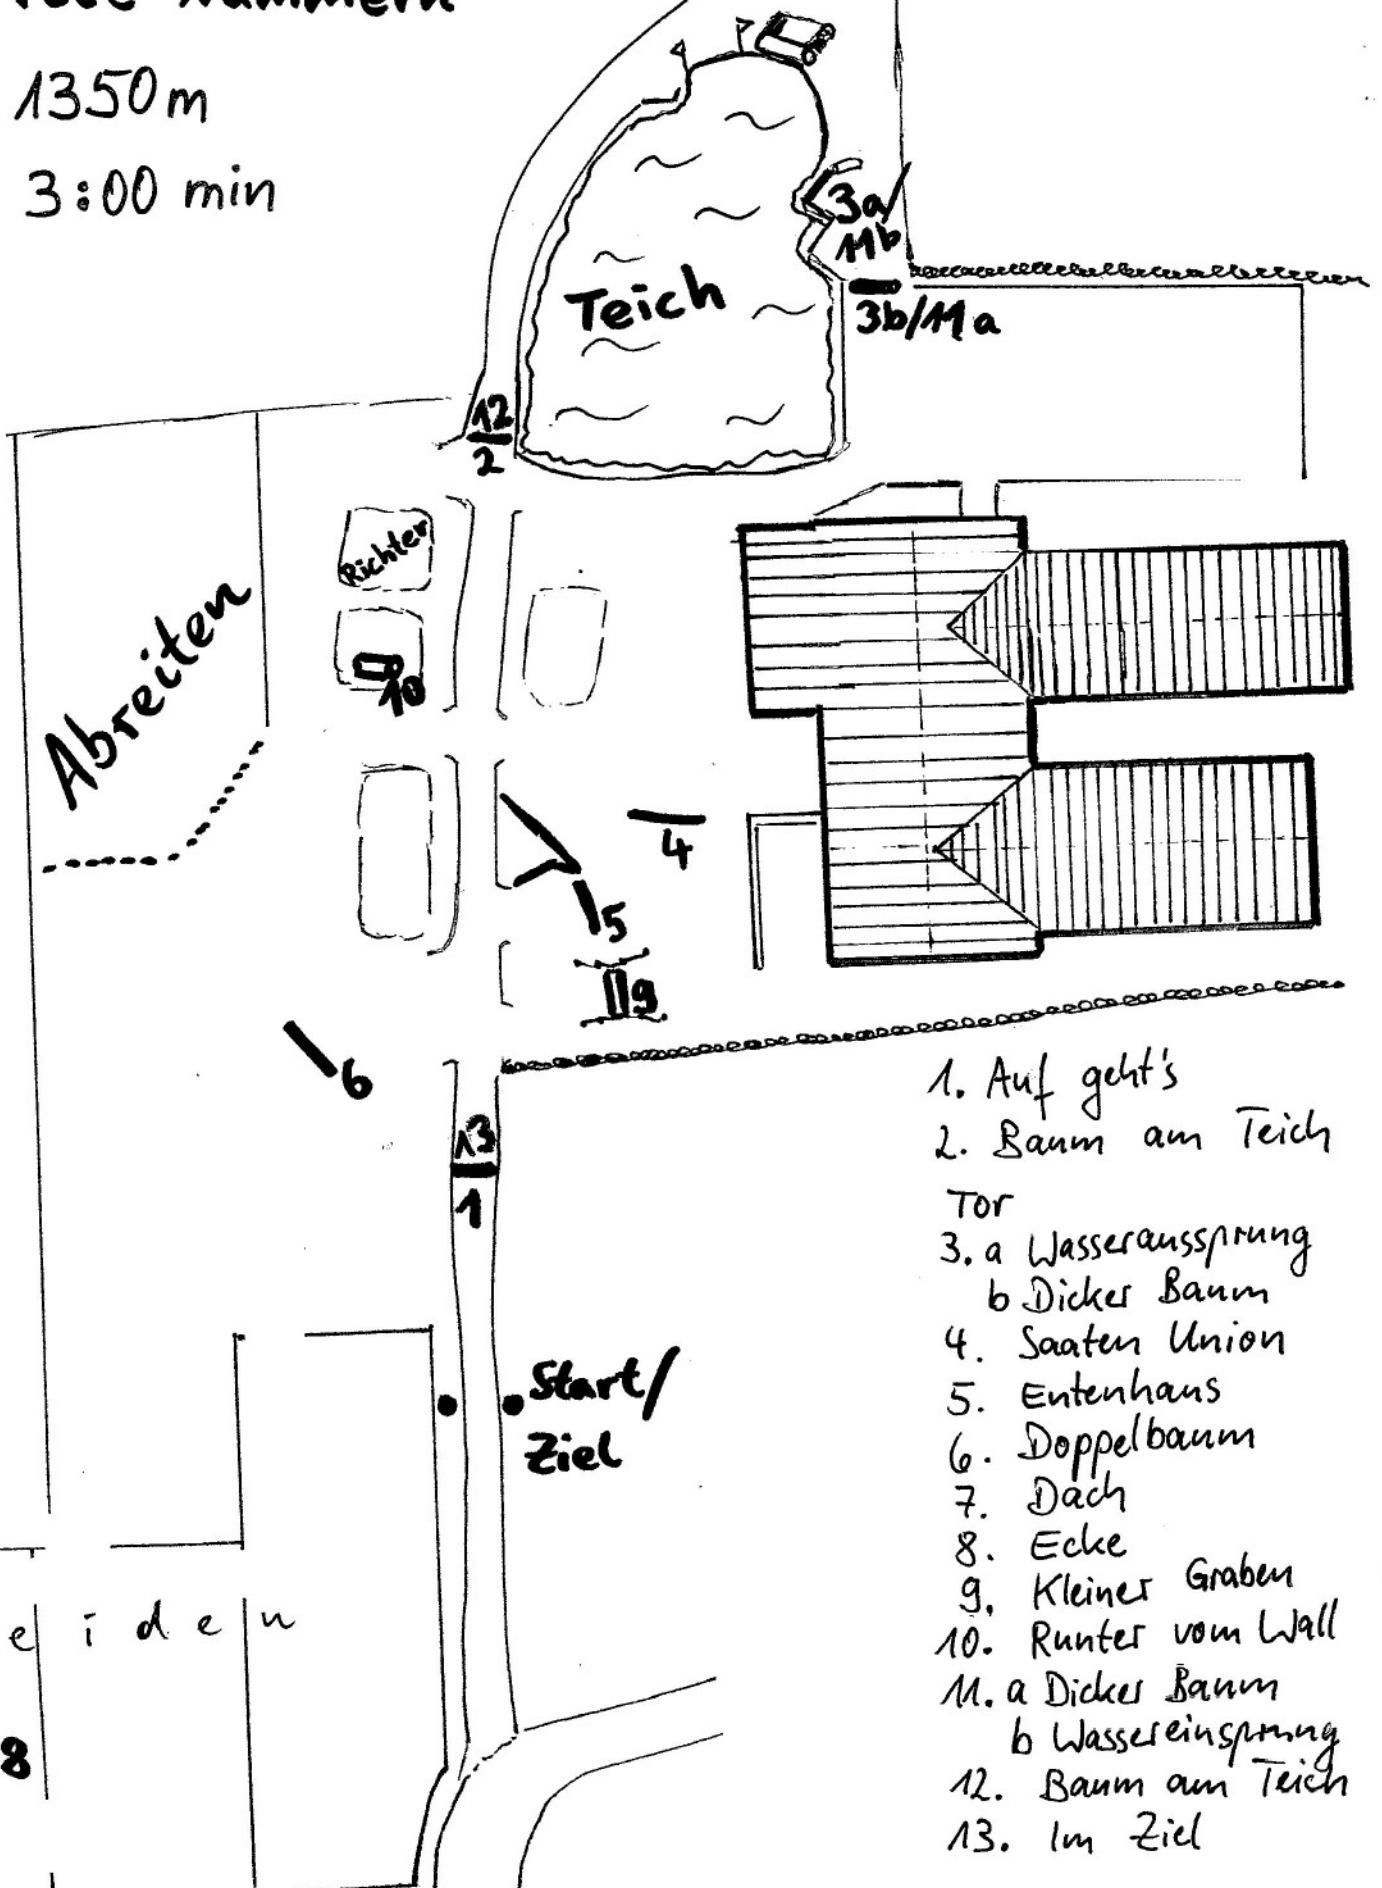 1350m
3:00 min
3a/
11b
Teich
3b/11a
12
2
Richter
Abreiten
10
4
5
9
6
13
1
Start/
Ziel
eiden
8
1. Auf geht's
2. Baum am Teich
Tor
3. a Wasseraussprung
b Dicker Baum
4. Saaten Union
5. Entenhaus
6. Doppelbaum
7. Dach
8. Ecke
9. Kleiner Graben
10. Runter vom Wall
11. a Dicker Baum
b Wassereinsprung
12. Baum am Teich
13. Im Ziel